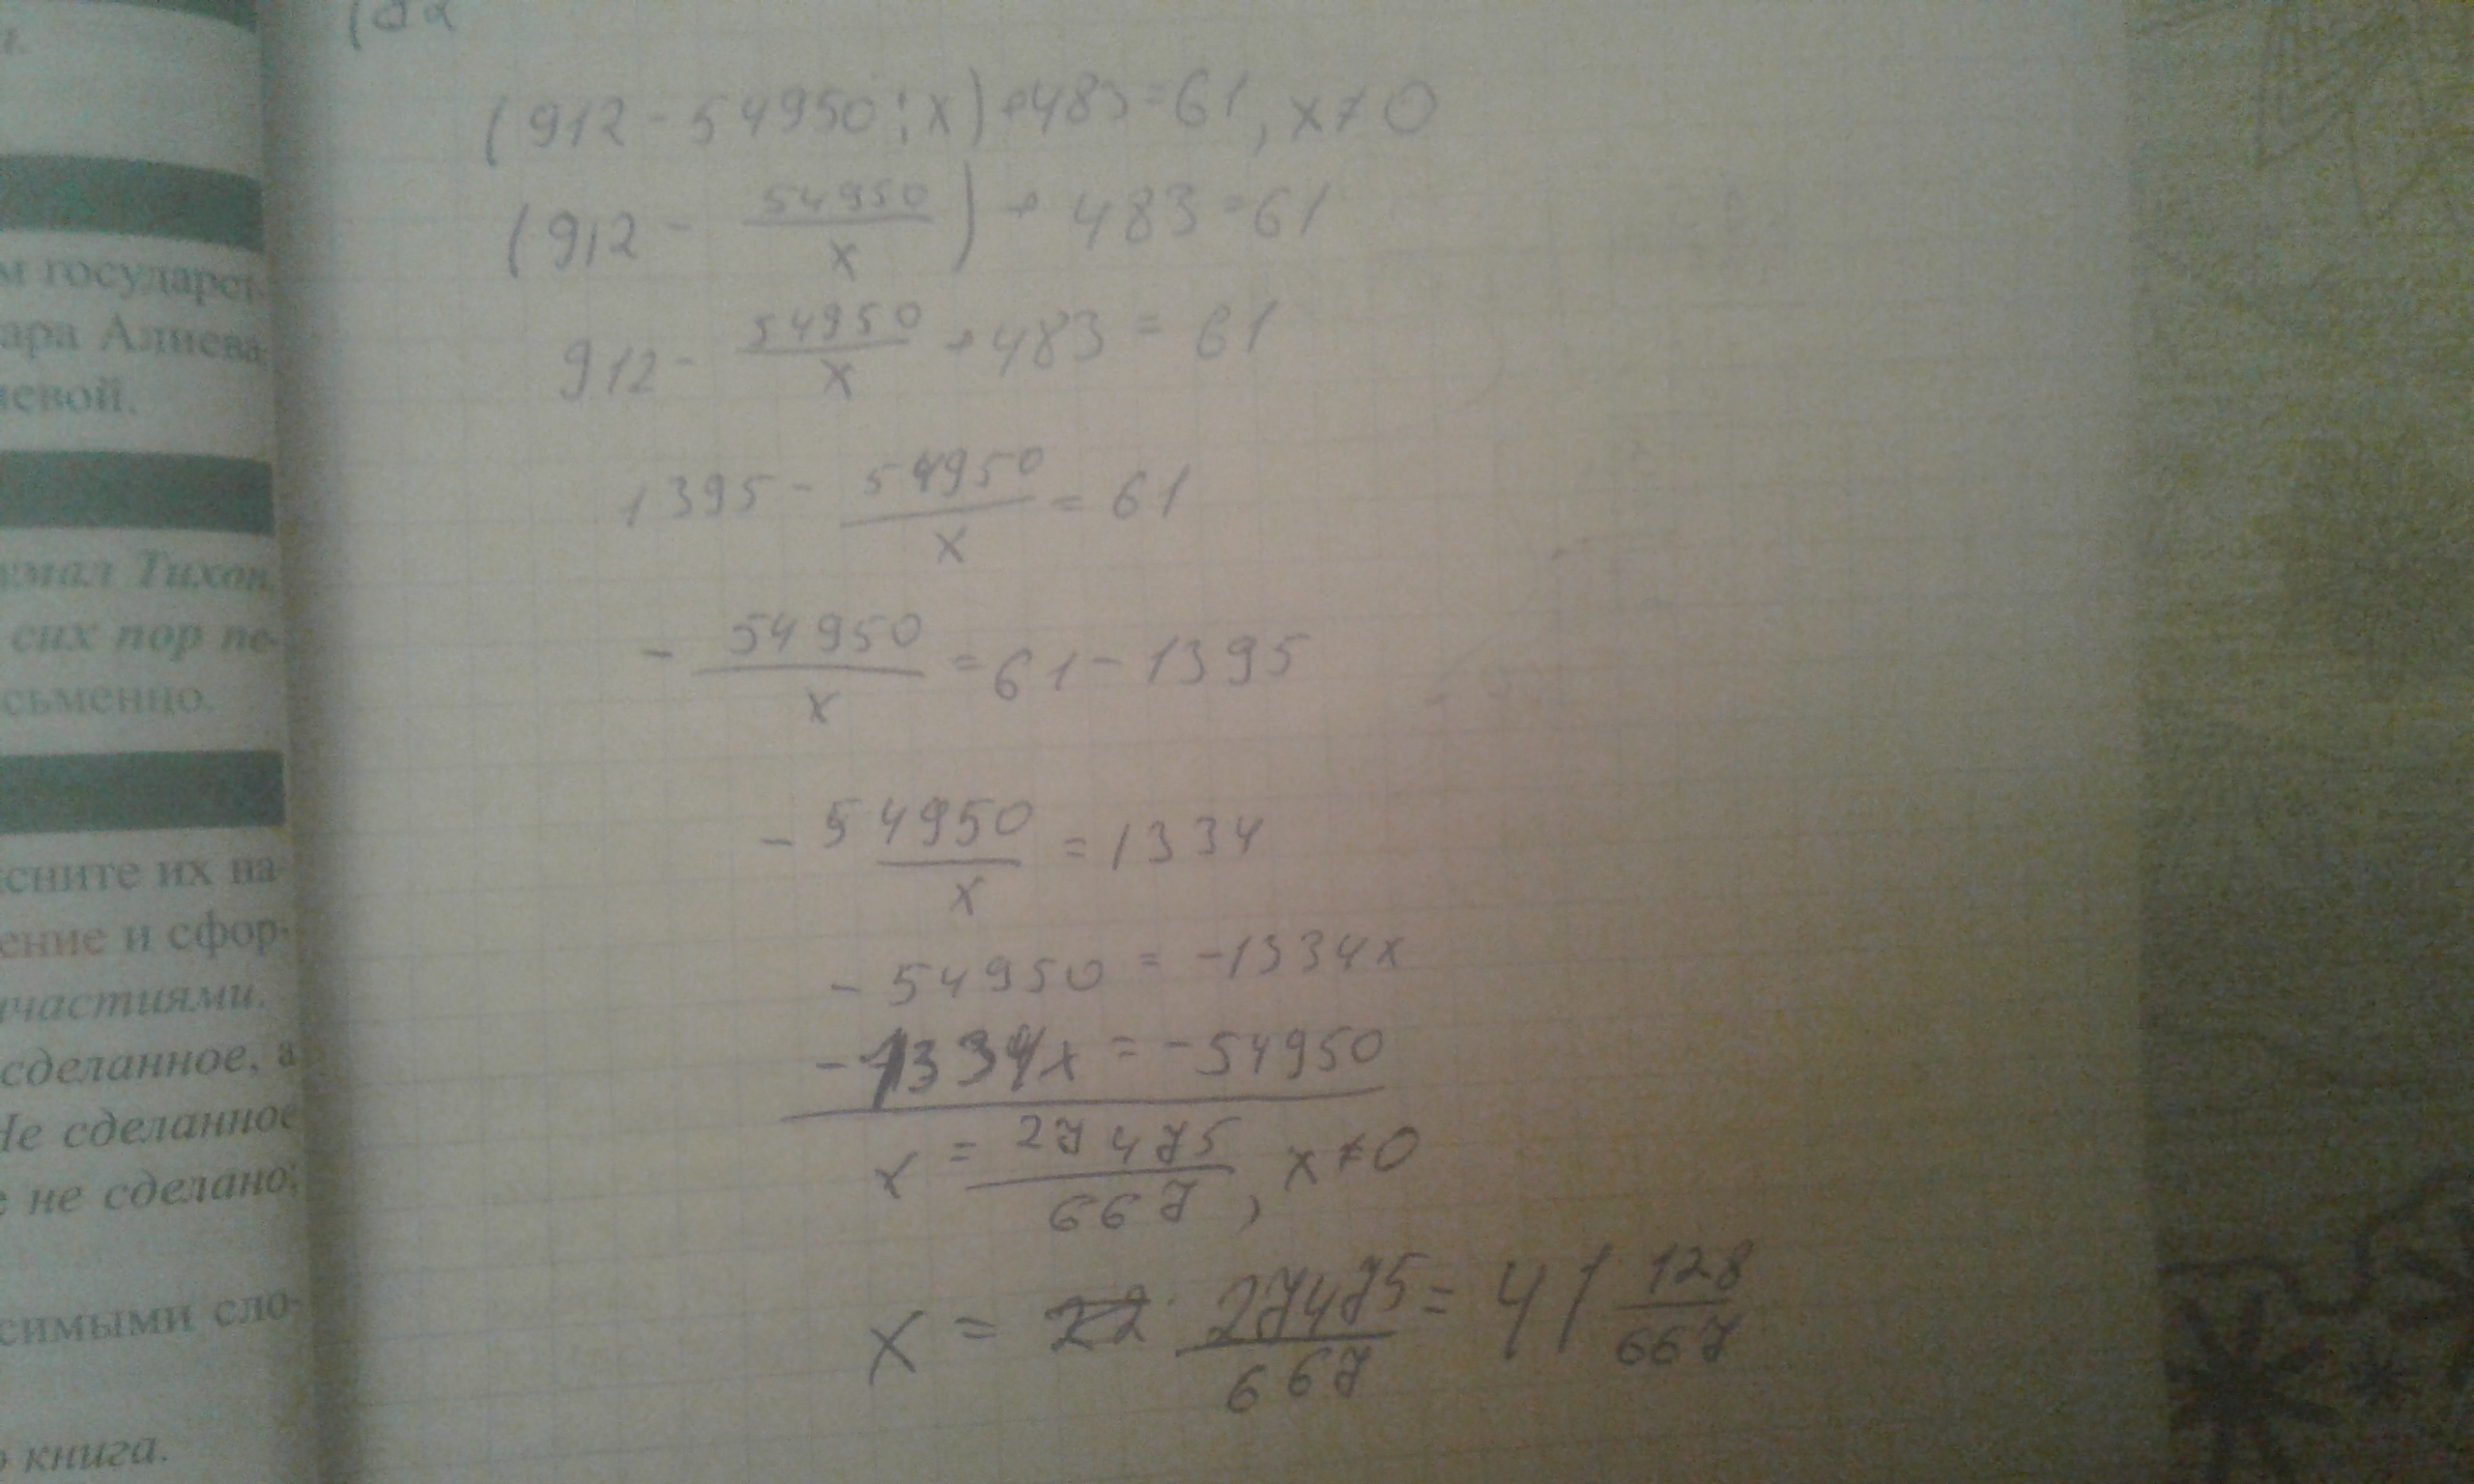 г.
м государст-
ара Алиева
иевой.
умал Тихон,
сих пор пе-
сьменно.
сните их на-
ение и сфор-
ичастиями.
сделанное, а
Не сделанное
е не сделано;
симыми сло-
о книга.
(912 - 54950 : x) + 483 = 61, x ≠ 0
(912 - 54950/x) + 483 = 61
912 - 54950/x + 483 = 61
1395 - 54950/x = 61
- 54950/x = 61 - 1395
- 54950/x = 1334
- 54950 = -1334x
- 1334x = -54950
x = 27475/667, x ≠ 0
x = 27475/667 = 41 128/667